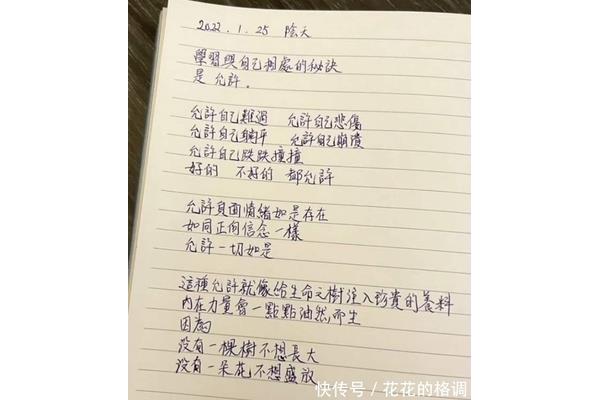 2022.1.25 陰天
學習與自己相處的秘訣
是 允許.
允許自己難過 允許自己悲傷
允許自己躺平 允許自己崩潰
允許自己跌跌撞撞
好的 不好的 都允許
允許負面情緒如是存在
如同正向信念一樣
允許一切如是
這種允許就像給生命之樹注入珍貴的養料
內在力量會一點點油然而生
因為
沒有一棵樹不想長大
沒有一朵花不想盛放
快传号/花花的格调